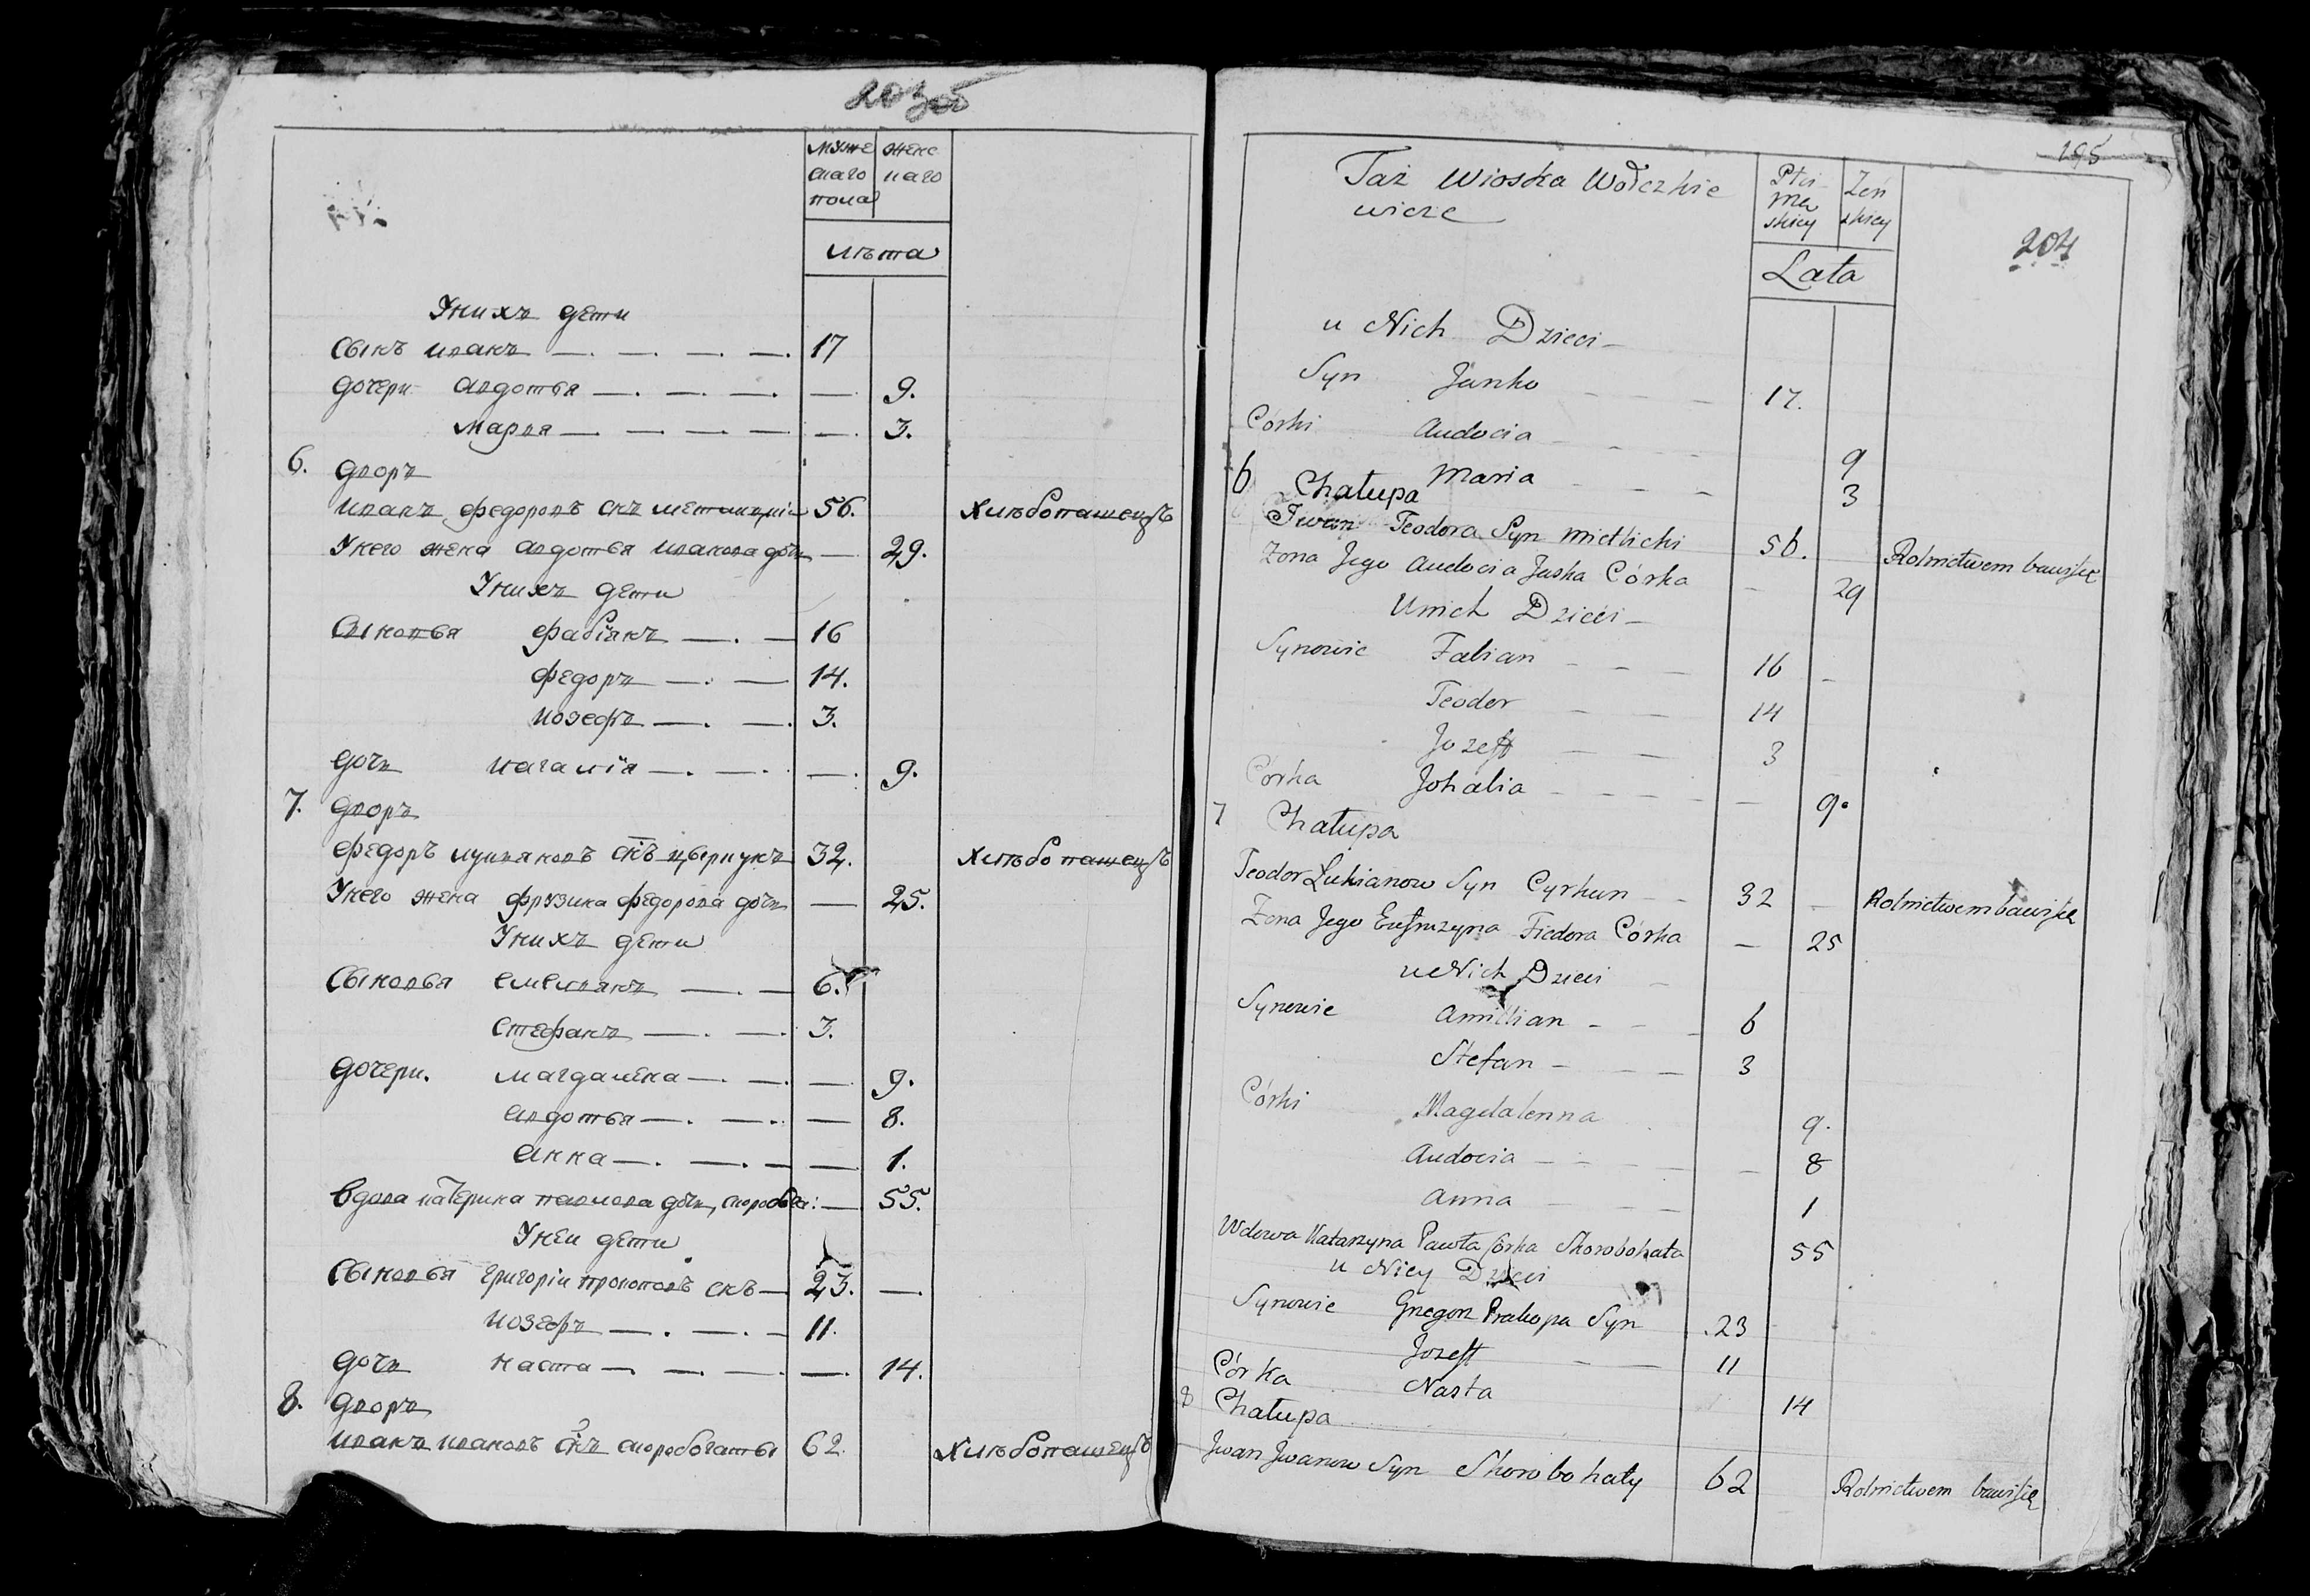 203 об
муже
скаго
пола
женс
каго
лѣта
У нихъ дети
сынъ иванъ — 17
дочери авдотья — — 9.
марва — — 3.
6. дворъ
иванъ федоровъ снъ 56. хлѣбопашецъ
У него жена авдотья иванова дочь — 29.
У нихъ дети
сыновья фабіянъ — 16
федоръ — 14.
иозефъ — 3.
дочь югалія — — 9.
7. дворъ
федоръ лукяновъ снъ цыркунъ 32. хлѣбопашецъ
У него жена фрузина федорова дочь — 25.
У нихъ дети
сыновья емельянъ — 6.
стефанъ — 3.
дочери. магдалена — — 9.
авдотья — — 8.
анна — — 1.
вдова катерина павлова дочь, скоробога: — 55.
У неи дети
сыновья григоріи прокоповъ снъ — 23. —
иозефъ — 11.
дочь наста — — 14.
8. дворъ
иванъ ивановъ снъ скоробогаты 62. хлѣбопашецъ
195
204
Taż Wioska Wołczkie
wicze
Płci
mę
skiey
Żeń
skiey
Lata
u Nich Dzieci —
Syn Janko — 17.
Córki Audocia — 9
Maria — 3
6 Chałupa
Iwan Teodora Syn Mietlicki 56. Rolnictwem bawi się
Zona Jego Audocia Jaska Córka — 29
U nich Dzieci —
Synowie Fabian — 16 —
Teodor — 14
Jozeff — 3
Córka Johalia — — 9.
7 Chałupa
Teodor Łukianow Syn Cyrkun — 32 — Rolnictwem bawi się
Zona Jego Eufruzyna Fiedora Córka — 25
u Nich Dzieci —
Synowie Amillian — 6
Stefan — 3
Córki Magdalenna 9.
Audocia — — 8
Anna — 1
Wdowa Katarzyna Pawła Córka Skorobohata 55
u Niey Dzieci
Synowie Gregorz Prakopa Syn .23
Jozeff — 11
Córka Nasta 14
8 Chałupa
Jwan Jwanow Syn Skorobohaty 62 Rolnictwem bawi się